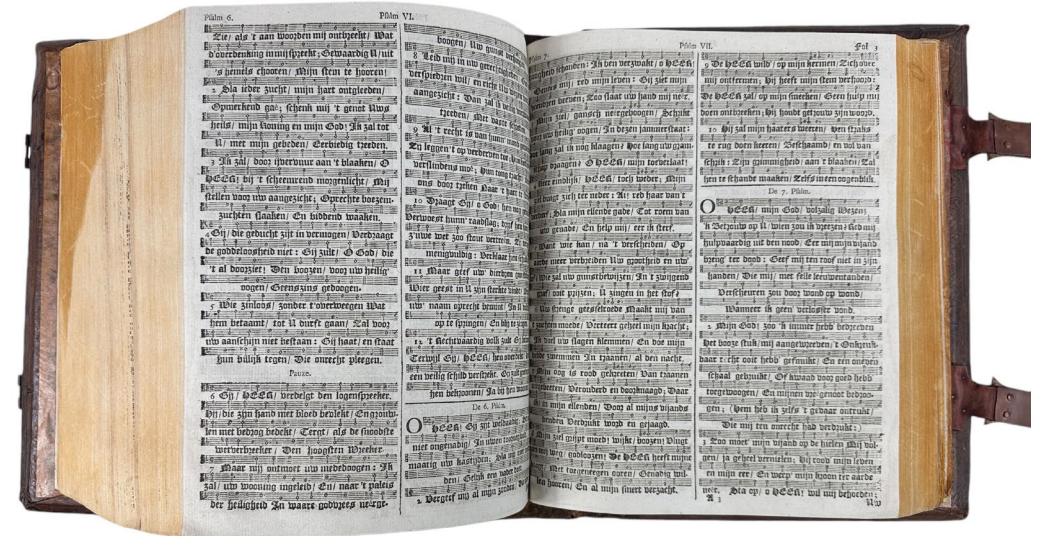 Psalm 6.
Psalm VI.
Zie/ als 't aan woorden mij ontbreekt/ Wat
d'overdenking inmijspreekt; Gewaardig U/uit
's hemels chooren/ Mijn stem te hooren!
2 Sla ieder zucht/ mijn hart ontgleeden/
Opmerkend gaê; schenk mij 't genot Uws
heils/ mijn Koning en mijn God; Ik zal tot
U/ met mijn gebeden/ Eerbiedig treeden.
3 Ik zal/ door ijvervuur aan 't blaaken/ O
HEER; bij 't scheemrend morgenlicht/ Mij
stellen voor uw aangezicht; Oprechte boezem-
zuchten slaaken/ En biddend waaken.
4 Gij/ die geducht zijt in vermogen/ Verdraagt
de goddeloosheid niet: Gij zult/ O God/ die
't al doorziet; Den boozen/ voor uw heilig'
oogen/ Geenszins gedoogen.
5 Wie zinloos/ zonder t'overweegen Wat
hem betaamt/ tot U durft gaan/ Zal voor
uw aanschijn niet bestaan: Gij haat/ en staat
hun billijk tegen/ Die onrecht pleegen.
Pauze.
6 Gij/ HEER/ verdelgt den logenspreeker.
Hij/ die zijn hand met bloed bevlekt/ En gruuw-
len met bedrog bedekt/ Tergt/ als de snoodste
wetverbreeker/ Den hoogsten Wreeker.
7 Maar mij ontmoet uw mededoogen: Ik
zal/ uw wooning ingeleid/ En/ naar 't paleis
der heiligheid In waare godvrees neêrge-
boogen/ Uw gunst
8 Leid mij in uw gerechtigheden
verspieden wil/ en richt
aangezicht: Dan zal ik
treeden/ Met vaste
9 Al 't recht is van hunne
Zij leggen't op verderven toe/
verslindens moê; Hun tong
ons door treken Naar 't hart
10 Draagt Gij/ o God/
Verwoest hunn' raadslag; drijf hen
z'uwe wet zoo stout vertreên,
menigvuldig: Verklaar hen
11 Maar geef uw' dierbren gunst
Wier geest in U zijn sterkte vindt
uw' naam oprecht bemint/ In U
op te springen/ En blij te zingen
12 't Rechtvaardig volk zult Gij
Terwijl Gij/ HEER/ hen overdekt
een veilig schild verstrekt. Gij zult
hen bekroonen/ Ja bij hen woonen
De 6. Psalm.
O HEER; Gij zijt weldaadig
niet ongenadig/ In uwen toorn
maatig uw kastijden; Sla mij
den; Gelijk een vader
2 Vergeef mij al mijn zonden/
Psalm VII.
Fol 3
hoogheid schonden: Ik ben verzwakt/ o HEER
Genees mij/ red mijn leven: Gij ziet mijn
beenderen beeven; Zoo slaat uw hand mij neêr.
3 Mijn ziel/ gansch neêrgeboogen/ Schrikt
voor uw heilig' oogen/ In dezen jammerstaat:
Hoe lang zal ik nog klaagen/ Hoe lang uw gram-
schap draagen/ O HEER/ mijn toeverlaat!
4 Keer eindlijk/ HEER/ toch weder; Mijn
buigt zich ter neder: Ai! red haar van 't
Sla mijn ellende gade/ Tot roem van
uw genade/ En help mij/ eer ik sterf.
5 Want wie kan/ na 't verscheiden/ Op
meer verbreiden Uw grootheid en uw
Wie zal uw gunstbewijzen/ In 't zwijgend
graf/ ooit prijzen; U zingen in het stof?
6 Uw strenge geesselroede Maakt mij van
zuchten moede/ Verteert geheel mijn kracht;
uw slagen klemmen/ En doe mijn
bedde zwemmen In traanen/ al den nacht.
7 Mijn oog is rood gekreeten/ Van traanen
Verouderd en doorknaagd; Daar
ik in mijn ellenden/ Door al mijns vijands
benden Verdrukt word en gejaagd.
8 Mijn ziel grijpt moed; wijkt/ boozen; Vlugt
weg/ goddloozen; De HEER heeft mijn
Met toegeneegen ooren/ Genadig wil-
len hooren/ En al mijn smert verzacht.
9 De HEER wild'/ op mijn kermen/ Zich over
mij ontfermen; Hij heeft mijn stem verhoord:
De HEER zal/ op mijn smeeken/ Geen hulp mij
doen ontbreeken; Hij houdt getrouw zijn woord.
10 Hij zal mijn haaters weeren/ Hen straks
te rug doen keeren/ Beschaamd/ en vol van
schrik: Zijn grimmigheid/ aan 't blaaken/ Zal
hen te schande maaken/ Zelfs in een oogenblik.
De 7. Psalm.
O HEER/ mijn God/ volzalig Wezen;
'k Betrouw op U/ wien zou ik vreezen; Red mij
hulpvaardig uit den nood/ Eer mij mijn vijand
breng' ter dood: Geef mij ten roof niet in zijn
handen/ Die mij/ met felle leeuwentanden/
Verscheuren zou door wond op wond/
Wanneer ik geen' verlosser vond.
2 Mijn God; zoo 'k immer hebb' bedreeven
Het booze stuk/ mij aangewreeven/ 't Onkreuk-
baar recht ooit hebb' gekrukt/ En een oneven
schaal gebruikt/ Of kwaad voor goed hebb'
toegewoogen/ En mijnen vreêgenoot bedroo-
gen; (Hem heb ik zelfs 't gevaar ontrukt/
Die mij ten onrecht had verdrukt:)
3 Zoo moet mijn vijand op de hielen Mij vol-
gen/ ja geheel vernielen; Hij roov' mijn leven
en mijn eer/ En werp' mijn kroon ter aarde
neêr. Sta op/ o HEER/ wil mij behoeden;
A 3
Uw